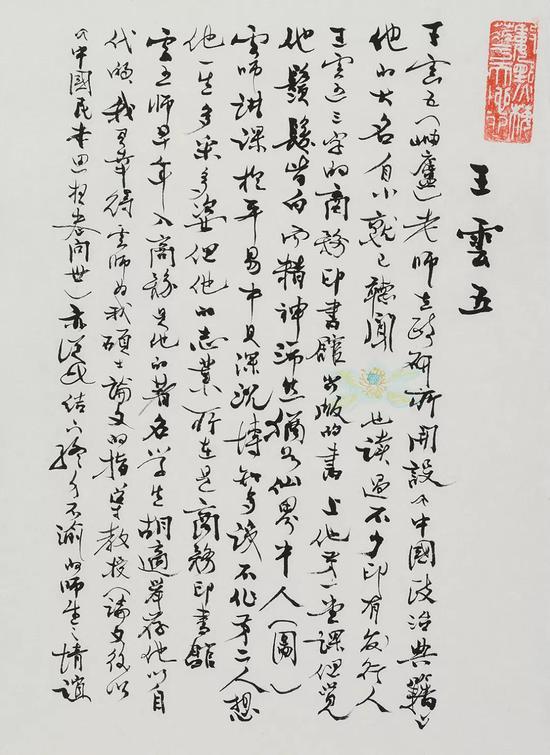 王雲五
王雲五(岫廬)老師在政研所開設《中國政治典籍》
他的大名自小就已聽聞 也讀過不少印有發行人
王雲五三字的商務印書館出版的書 上他第一堂課但覺
他鬚髮皆白而精神沛然猶如仙界中人(圖)
雲師講課於平易中見深沉博 不作第二人想
他一生多采多姿但他的志業所在是商務印書館
雲五師早年入商務是他的著名學生胡適舉荐他以自
代的 我有幸得雲師為我碩士論文的指導教授(論文後以
《中國民本思想史》問世)亦從此結下終身不渝的師生之情誼